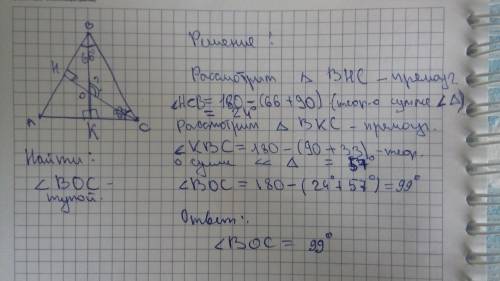 Решение!
B
66
H
O
A
K
C
Рассмотрим △ BHC – прямоуг.
∠HCB = 180 – (66 + 90) (теор. о сумме ∠ △)
= 24°
Рассмотрим △ BKC – прямоуг.
∠KBC = 180 – (90 + 33) – теор.
о сумме ∠∠ △ = 57°
∠BOC = 180 – (24° + 57°) = 99°
Найти:
∠BOC –
тупой.
Ответ:
∠BOC = 99°